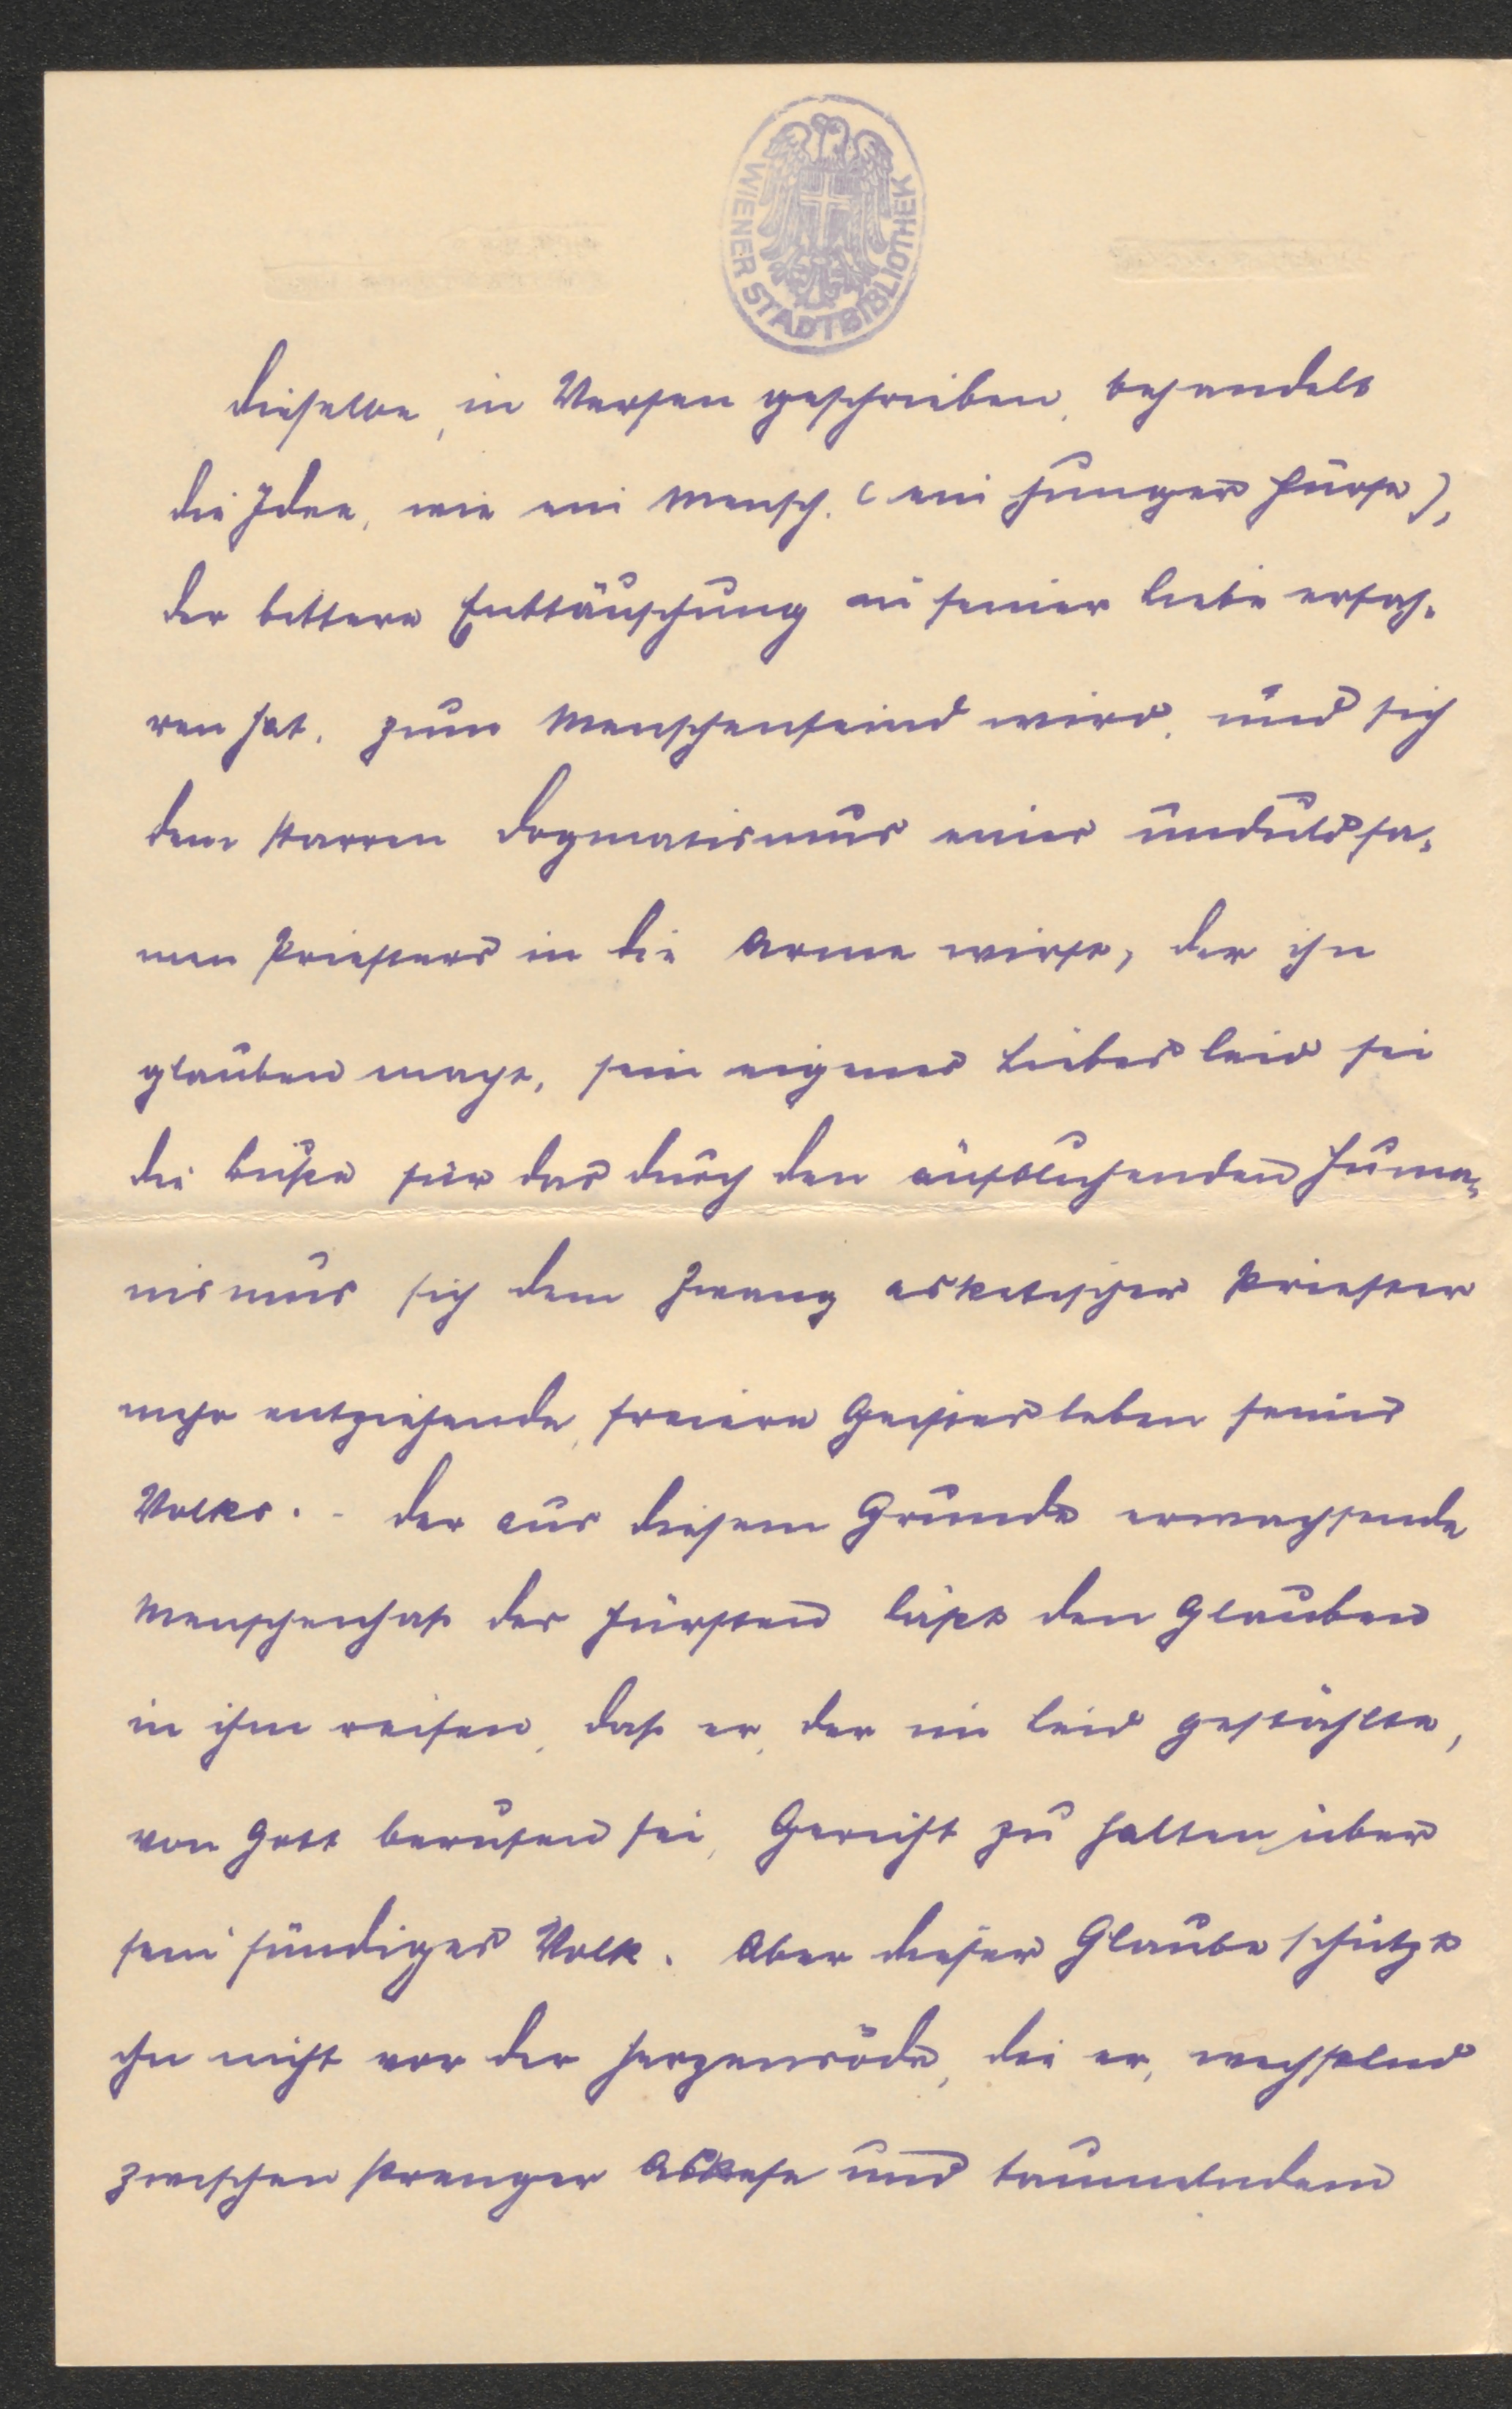 WIENER STADTBIBLIOTHEK
dieselbe, in Versen geschrieben, behandelt
die Idee, wie ein Mensch (ein junger Fürst),
der bittere Enttäuschung in seiner Liebe erfah-
ren hat, zum Menschenfeind wird, und sich
dem starren Dogmatismus eines unduldsa-
men Priesters in die Arme wirft, der ihn
glauben macht, sein eigenes Liebesleid sei
die Buße für das durch den aufblühenden Huma-
nismus sich dem Zwang asketischer Priester
mehr entziehende, freiere Geistesleben seines
Volkes. - Der aus diesem Grunde erwachsende
Menschenhaß des Fürsten läßt den Glauben
in ihm reifen, daß er, der im Leid gestählte,
von Gott berufen sei, Gericht zu halten über
sein sündiges Volk. Aber dieser Glaube schützt
ihn nicht vor der Herzensöde, die er, wechselnd
zwischen strenger Askese und taumelndem